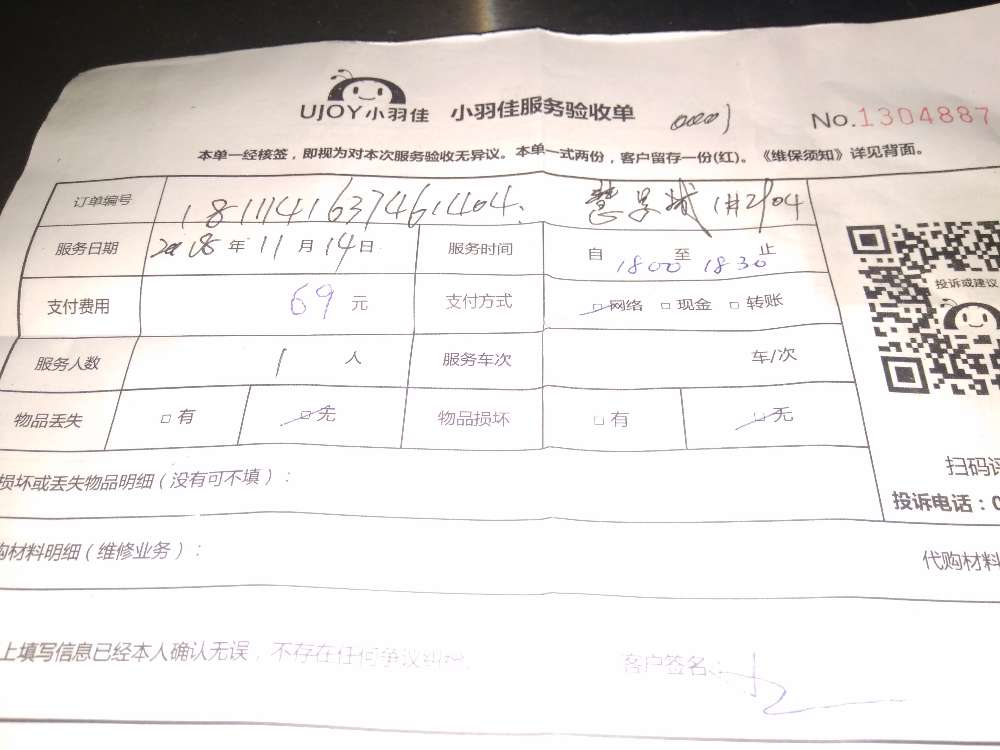 UJOY小羽佳 小羽佳服务验收单 No.1304887
本单一经核签，即视为对本次服务验收无异议。本单一式两份，客户留存一份(红)。《维保须知》详见背面。
订单编号 1811141637461404. 1#2104
服务日期 2018年11月14日 服务时间 自1800至1830止
投诉或建议
支付费用 69元 支付方式 □网络 □现金 □转账
服务人数 1人 服务车次 车/次
物品丢失 □有 □无 物品损坏 □有 □无
扫码评
损坏或丢失物品明细（没有可不填）：
投诉电话：0
购材料明细（维修业务）： 代购材料
上填写信息已经本人确认无误，不存在任何争议纠纷。 客户签名：